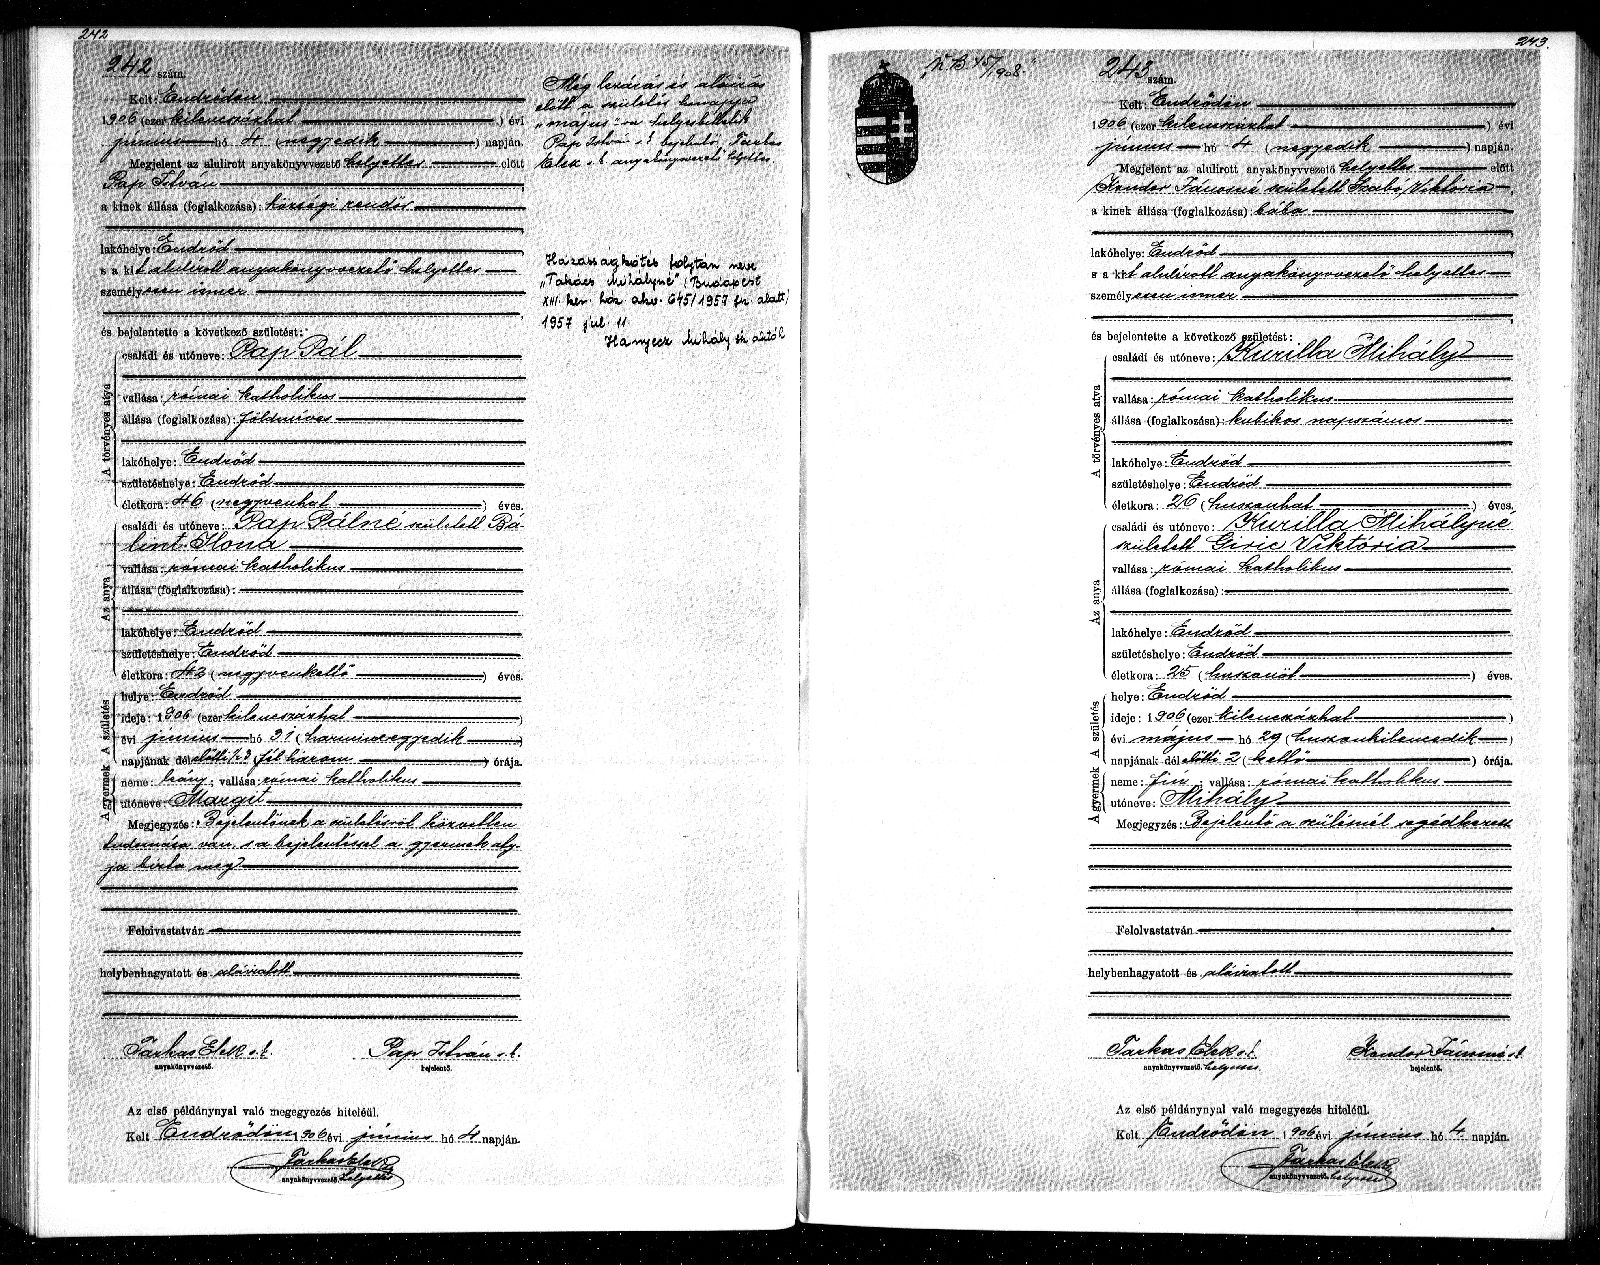 242
242 szám.
Kelt: Endrődön
1906 (ezer kilenczszázhat) évi
június hó 4 (negyedik) napján.
Megjelent az alulirott anyakönyvvezető helyettes előtt
Pap István
a kinek állása (foglalkozása): községi rendőr
lakóhelye: Endrőd
s a kit alulírott anyakönyvvezető helyettes
személyesen ismer
és bejelentette a következő születést:
A törvényes atya
családi és utóneve: Pap Pál
vallása: római katholikus
állása (foglalkozása): földmíves
lakóhelye: Endrőd
születéshelye: Endrőd
életkora: 46 (negyvenhat) éves.
Az anya
családi és utóneve: Pap Pálné született Bá-
lint Ilona
vallása: római katholikus
állása (foglalkozása):
lakóhelye: Endrőd
születéshelye: Endrőd
életkora: 42 (negyvenkettő) éves.
A születés
helye: Endrőd
ideje: 1906 (ezer kilenczszázhat)
évi június hó 31 (harminczegyedik)
napjának délelőtti 1/2 3 (fél három) órája.
A gyermek
neme: leány; vallása: római katholikus
utóneve: Margit
Megjegyzés: Bejelentőnek a születésről közvetlen
tudomása van, s a bejelentéssel a gyermek aty-
ja bízta meg
Felolvastatván
helybenhagyatott és aláíratott
Farkas Elek s.k. Pap István s.k.
anyakönyvvezető. bejelentő.
Az első példánynyal való megegyezés hiteléül.
Kelt Endrődön 1906 évi június hó 4 napján.
Farkas Elek
anyakönyvvezető. helyettes
Még lezárás és aláírás
előtt a születés hónapja
"május"-ra helyesbíttetik
Pap István s.k. bejelentő, Farkas
Elek s.k. anyakönyvvezető helyettes
Házasságkötés folytán neve
"Takács Mihályné" (Budapest
XIII. ker. ház. akv. 645/1957 fsz. alatt)
1957 jul. 11
Hanyecz Mihály sk. aktől
243.
243 szám.
Kelt: Endrődön
1906 (ezer kilenczszázhat) évi
június hó 4 (negyedik) napján.
Megjelent az alulirott anyakönyvvezető helyettes előtt
Kondor Jánosné született Szabó Viktória
a kinek állása (foglalkozása): bába
lakóhelye: Endrőd
s a kit alulírott anyakönyvvezető helyettes
személyesen ismer
és bejelentette a következő születést:
A törvényes atya
családi és utóneve: Kurilla Mihály
vallása: római katholikus
állása (foglalkozása): kubikos napszámos
lakóhelye: Endrőd
születéshelye: Endrőd
életkora: 26 (huszonhat) éves.
Az anya
családi és utóneve: Kurilla Mihályné
született Giric Viktória
vallása: római katholikus
állása (foglalkozása):
lakóhelye: Endrőd
születéshelye: Endrőd
életkora: 25 (huszonöt) éves.
A születés
helye: Endrőd
ideje: 1906 (ezer kilenczszázhat)
évi május hó 29 (huszonkilenczedik)
napjának délelőtti 2 (kettő) órája.
A gyermek
neme: fiu; vallása: római katholikus
utóneve: Mihály
Megjegyzés: Bejelentő a szülésnél segédkezett
Felolvastatván
helybenhagyatott és aláíratott
Farkas Elek s.k. Kondor Jánosné s.k.
anyakönyvvezető. helyettes bejelentő.
Az első példánynyal való megegyezés hiteléül.
Kelt Endrődön 1906 évi június hó 4 napján.
Farkas Elek
anyakönyvvezető. helyettes